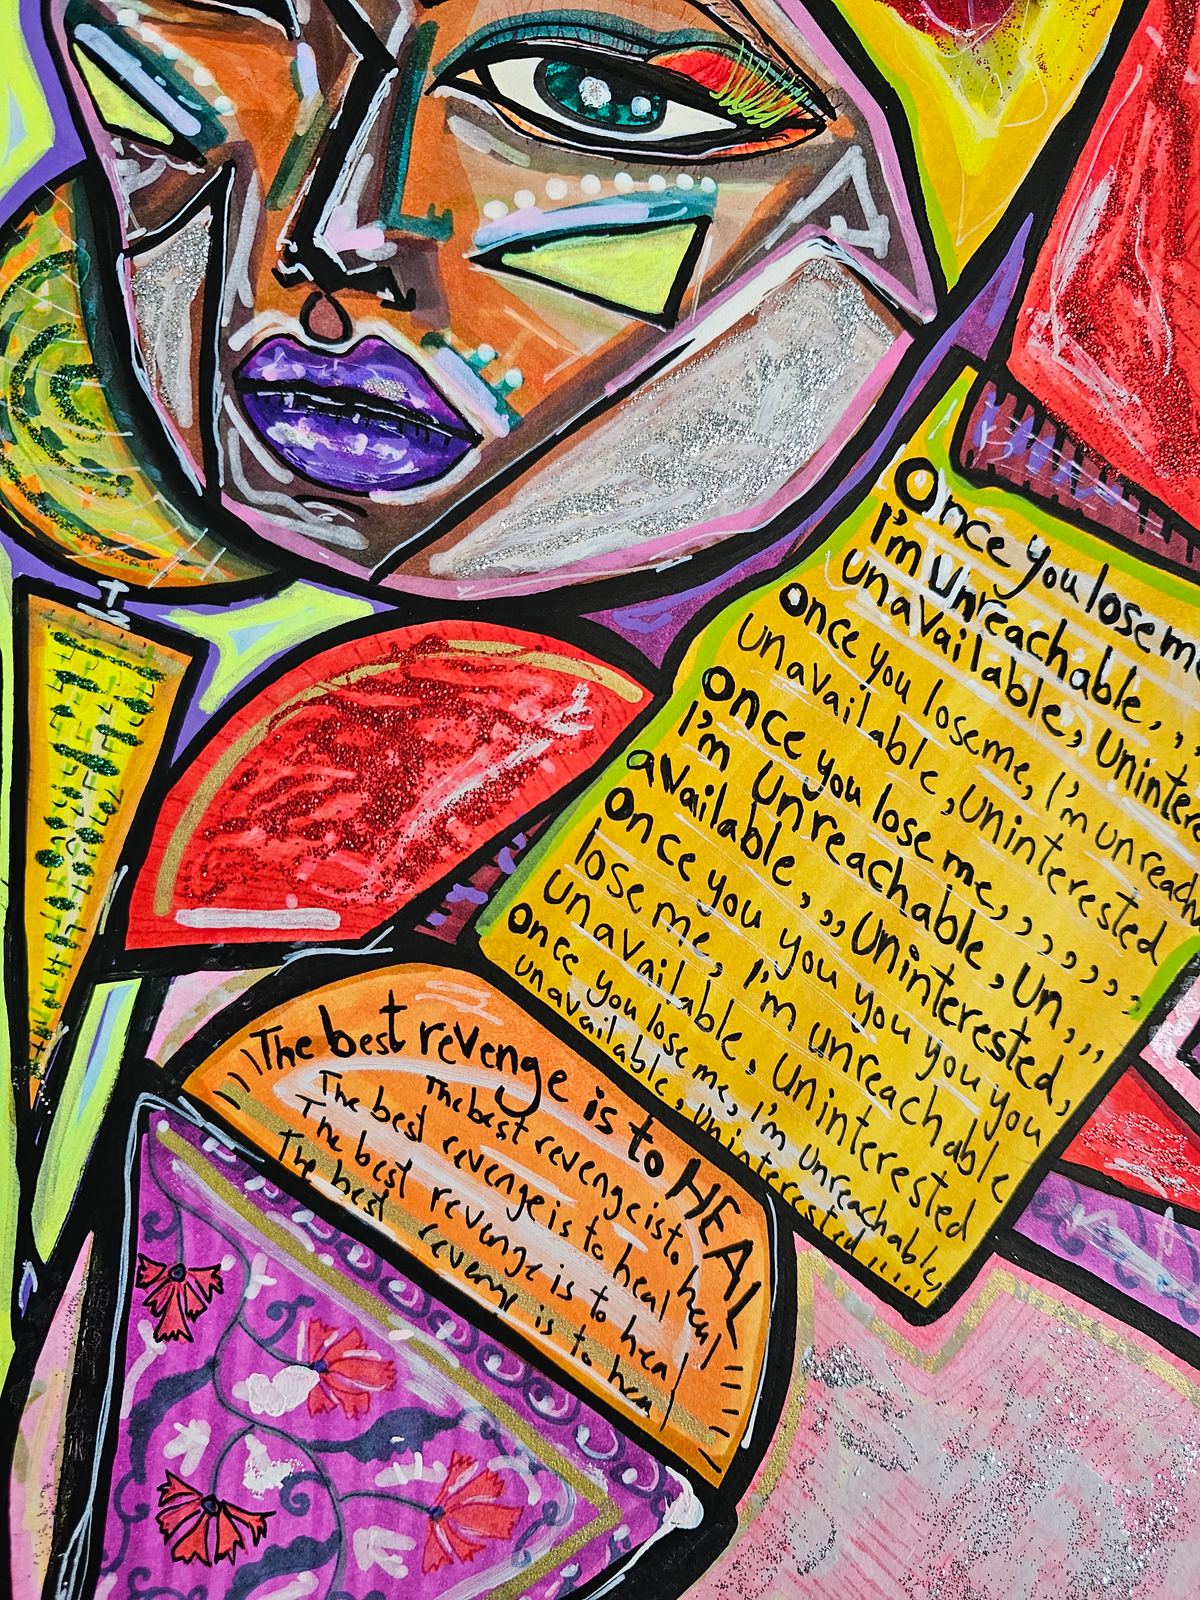 Once you lose me
I'm Unreachable, , ,
unavailable, Unintere
Once you lose me, I'm unreach
unavailable, uninterested
Once you lose me, , , , , ,
I'm unreachable, un, , ,
available, , , Uninterested,
Once you you you you you
lose me, I'm unreachable
unavailable, uninterested
Once you lose me, I'm unreachable,
unavailable, uninterested , , , , ,
The best revenge is to HEAL
The best revenge is to heal
The best revenge is to heal
The best revenge is to heal
The best revenge is to heal